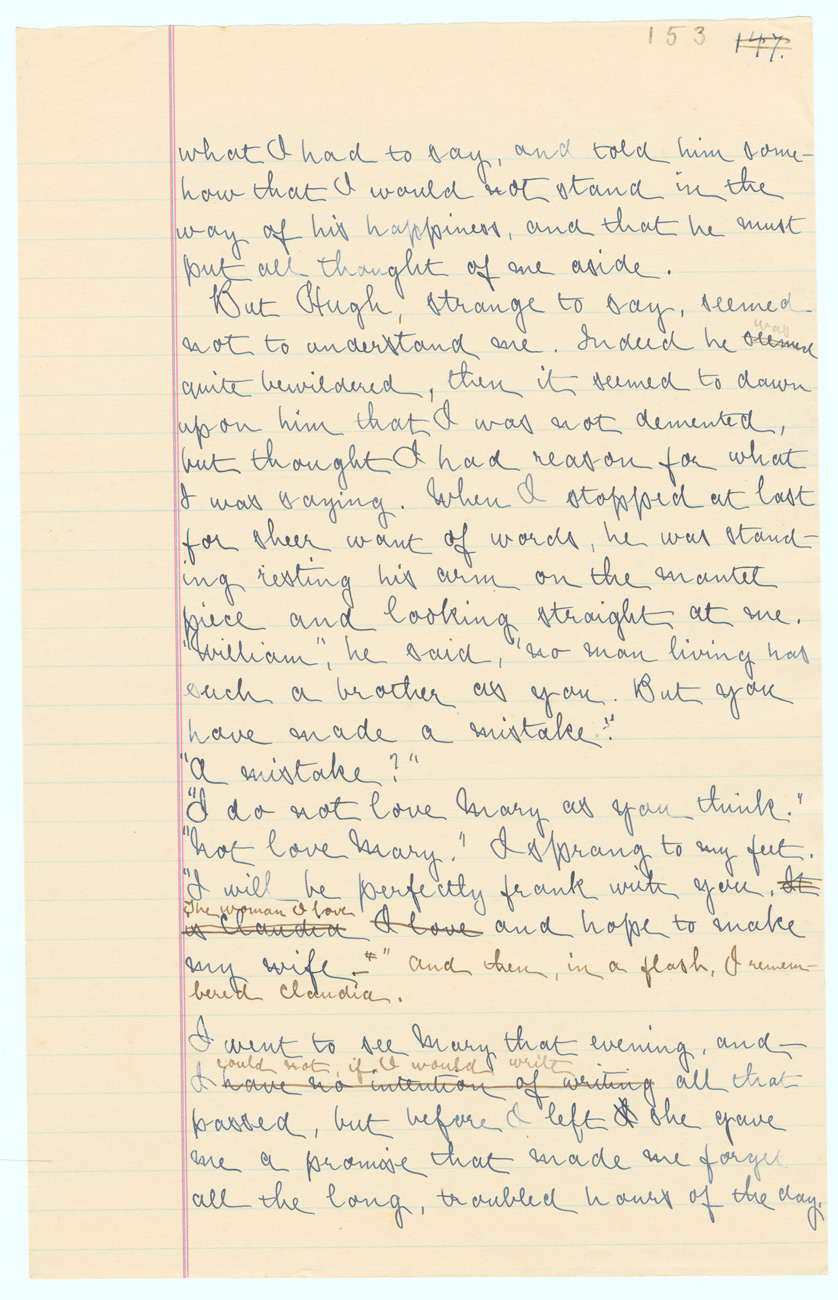 153 147.
what I had to say, and told him some-
how that I would not stand in the
way of his happiness, and that he must
put all thought of me aside.
But Hugh, strange to say, seemed
not to understand me. Indeed he seemed
was
quite bewildered, then it seemed to dawn
upon him that I was not demented,
but thought I had reason for what
I was saying. When I stopped at last
for sheer want of words, he was stand-
ing resting his arm on the mantel
piece and looking straight at me.
"William", he said, "no man living has
such a brother as you. But you
have made a mistake."
"A mistake?"
"I do not love Mary as you think."
"Not love Mary." I sprang to my feet.
"I will be perfectly frank with you. It
The woman I love
is Claudia I love and hope to make
my wife –" and then, in a flash, I remem-
bered Claudia.
I went to see Mary that evening, and –
could not, if I would write
I have no intention of writing all that
passed, but before I left she gave
me a promise that made me forget
all the long, troubled hours of the day.